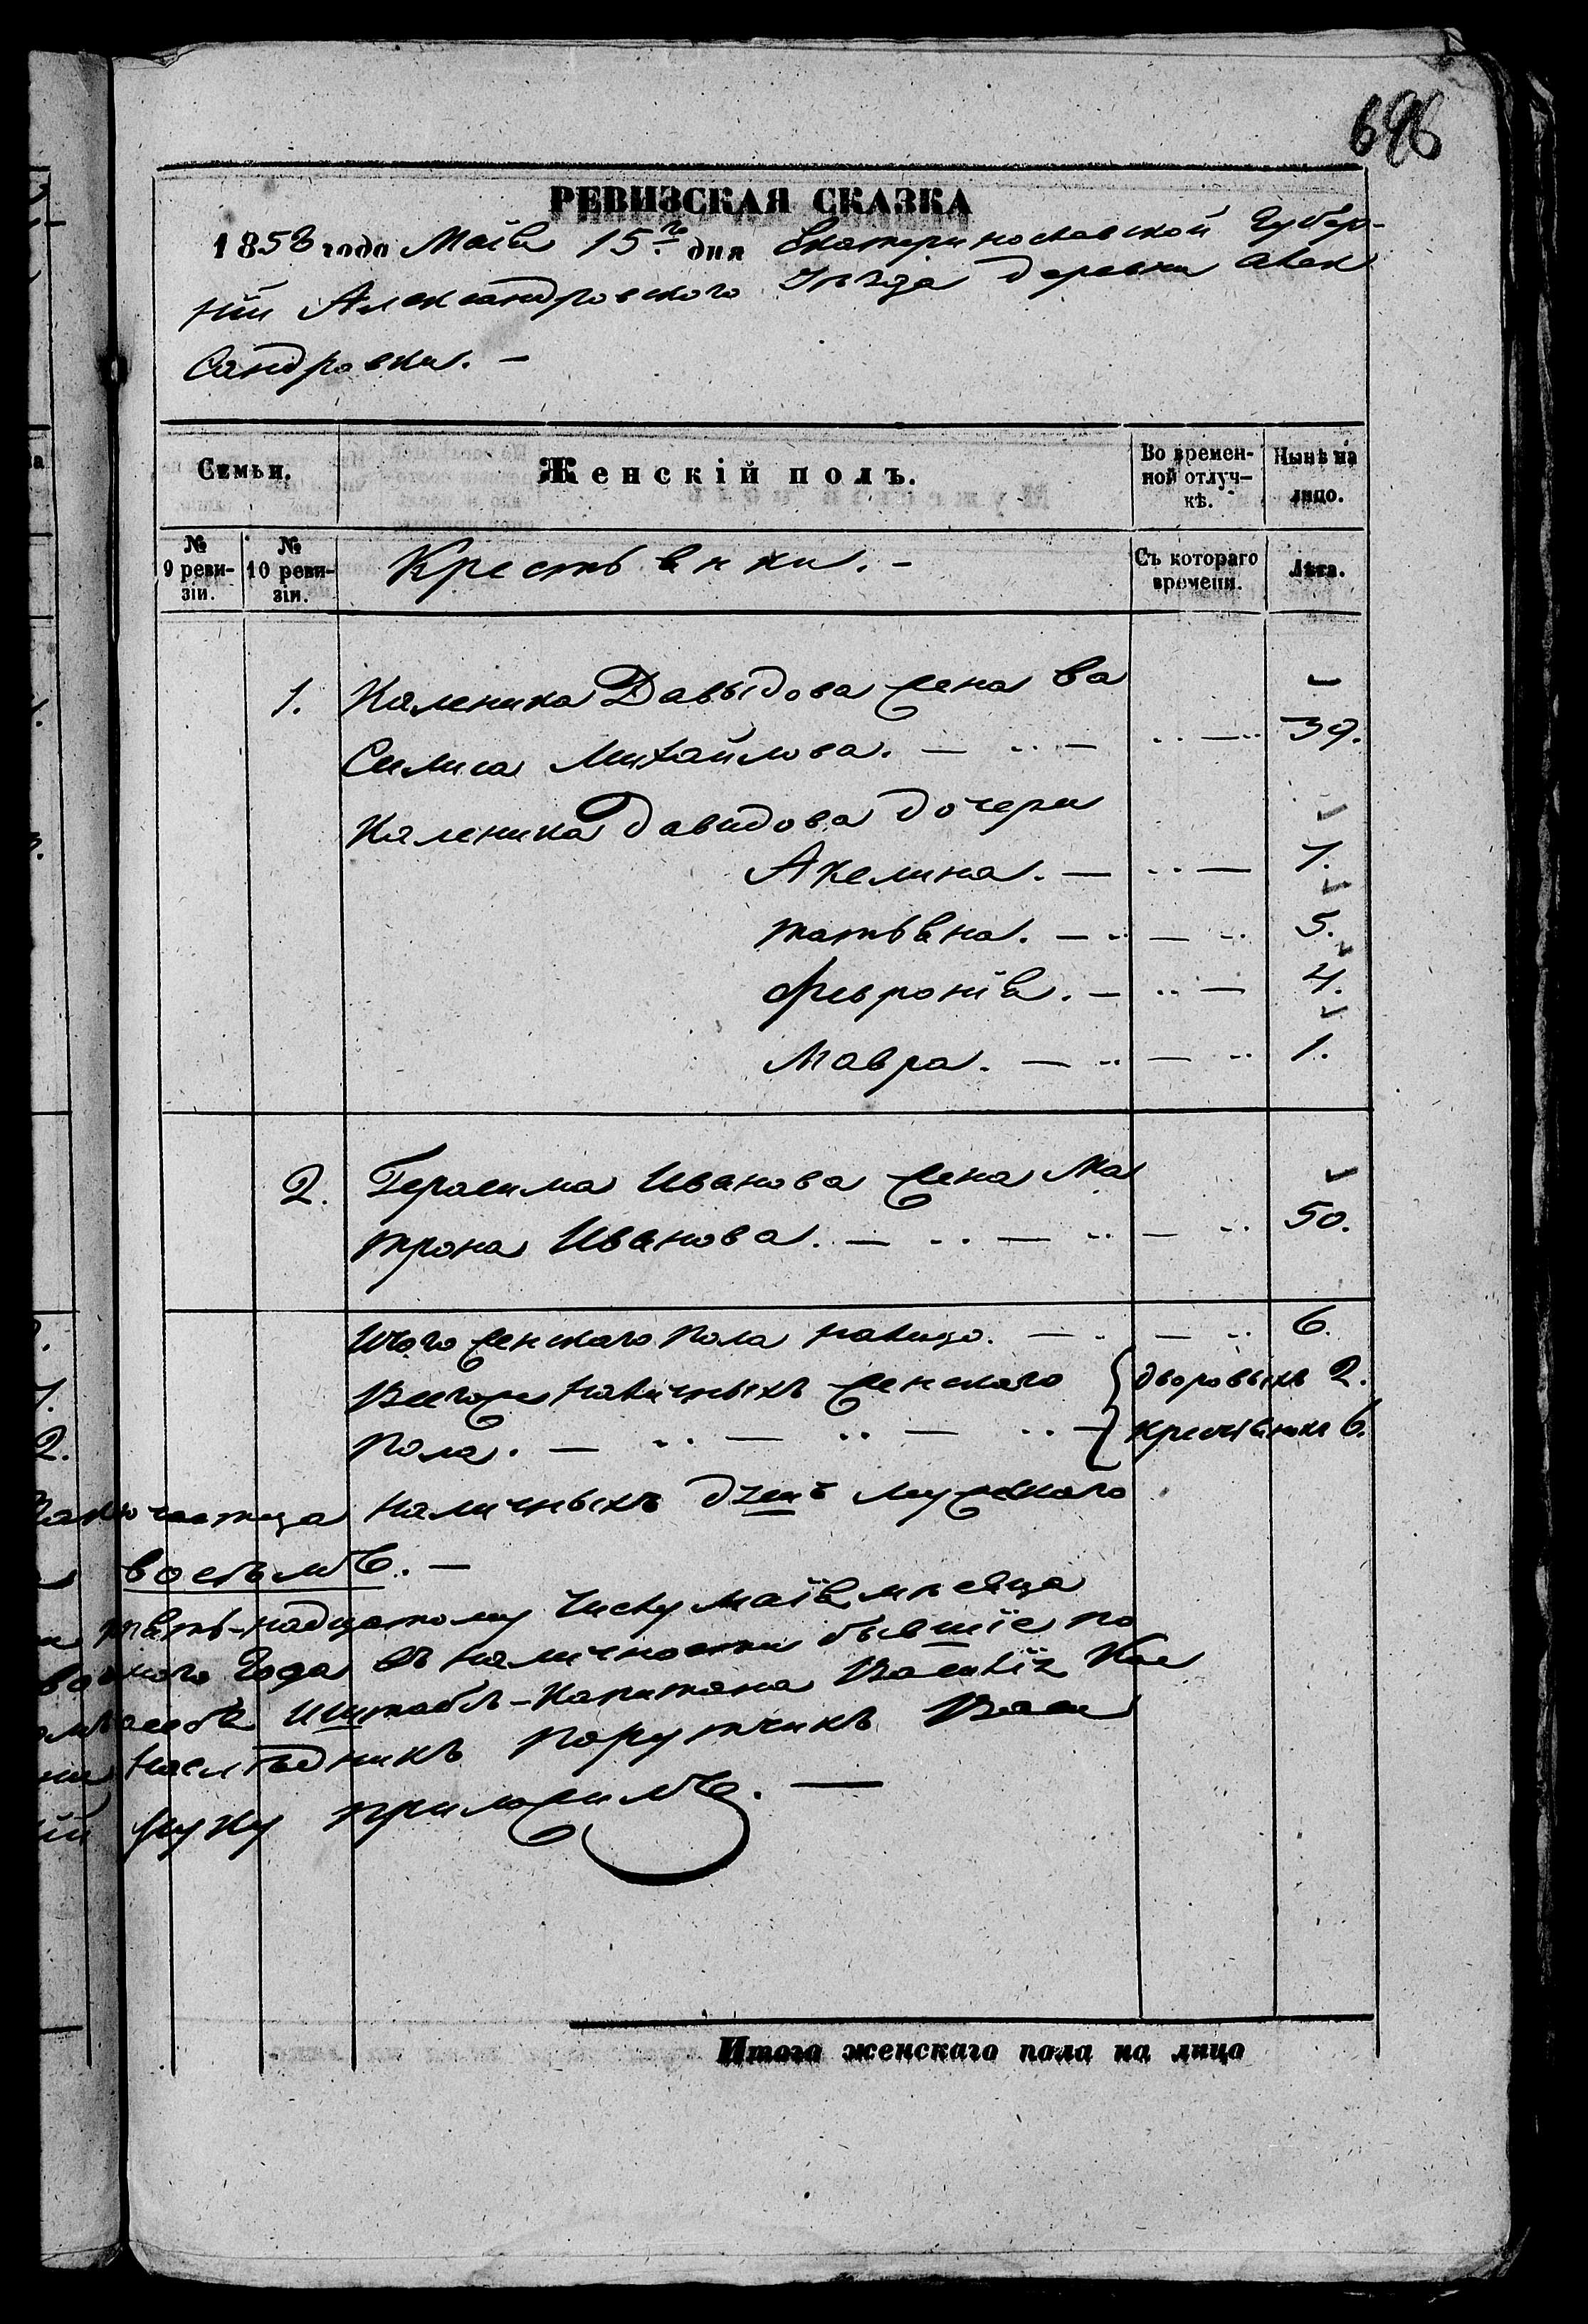 696
РЕВИЗСКАЯ СКАЗКА
1858 года Маія 15го дня Екатеринославской Губер-
ніи Александровского Уѣзда деревни Алек
сандровки. —
Семьи.
Женскій полъ.
Во времен-
ной отлуч-
кѣ.
Нынѣ на
лицо.
№
9 реви-
зіи.
№
10 реви-
зіи.
Крестьянки. -
Съ котораго
времени.
Лѣта.
1. Каленика Давыдова жена Ва
силиса Михайлова. 39.
Каленика Давидова дочери
Акелина. 7.
татьяна. 5.
Февронія. 4.
Мавра. 1.
2. Герасима Иванова жена Ма
трона Иванова. 50.
Итого женского пола налицо. 6.
Всегоже наличныхъ женского дворовыхъ 2.
пола. крестьянкъ 6.
наличныхъ душъ мужеского
восемь. —
пять-надцатому числу маія мѣсяца
года въ наличности бывшіе по
Штабсъ-Капитана Василія
наслѣдникъ Порутчикъ Васи
руку приложилъ. —
Итого женскаго пола на лицо